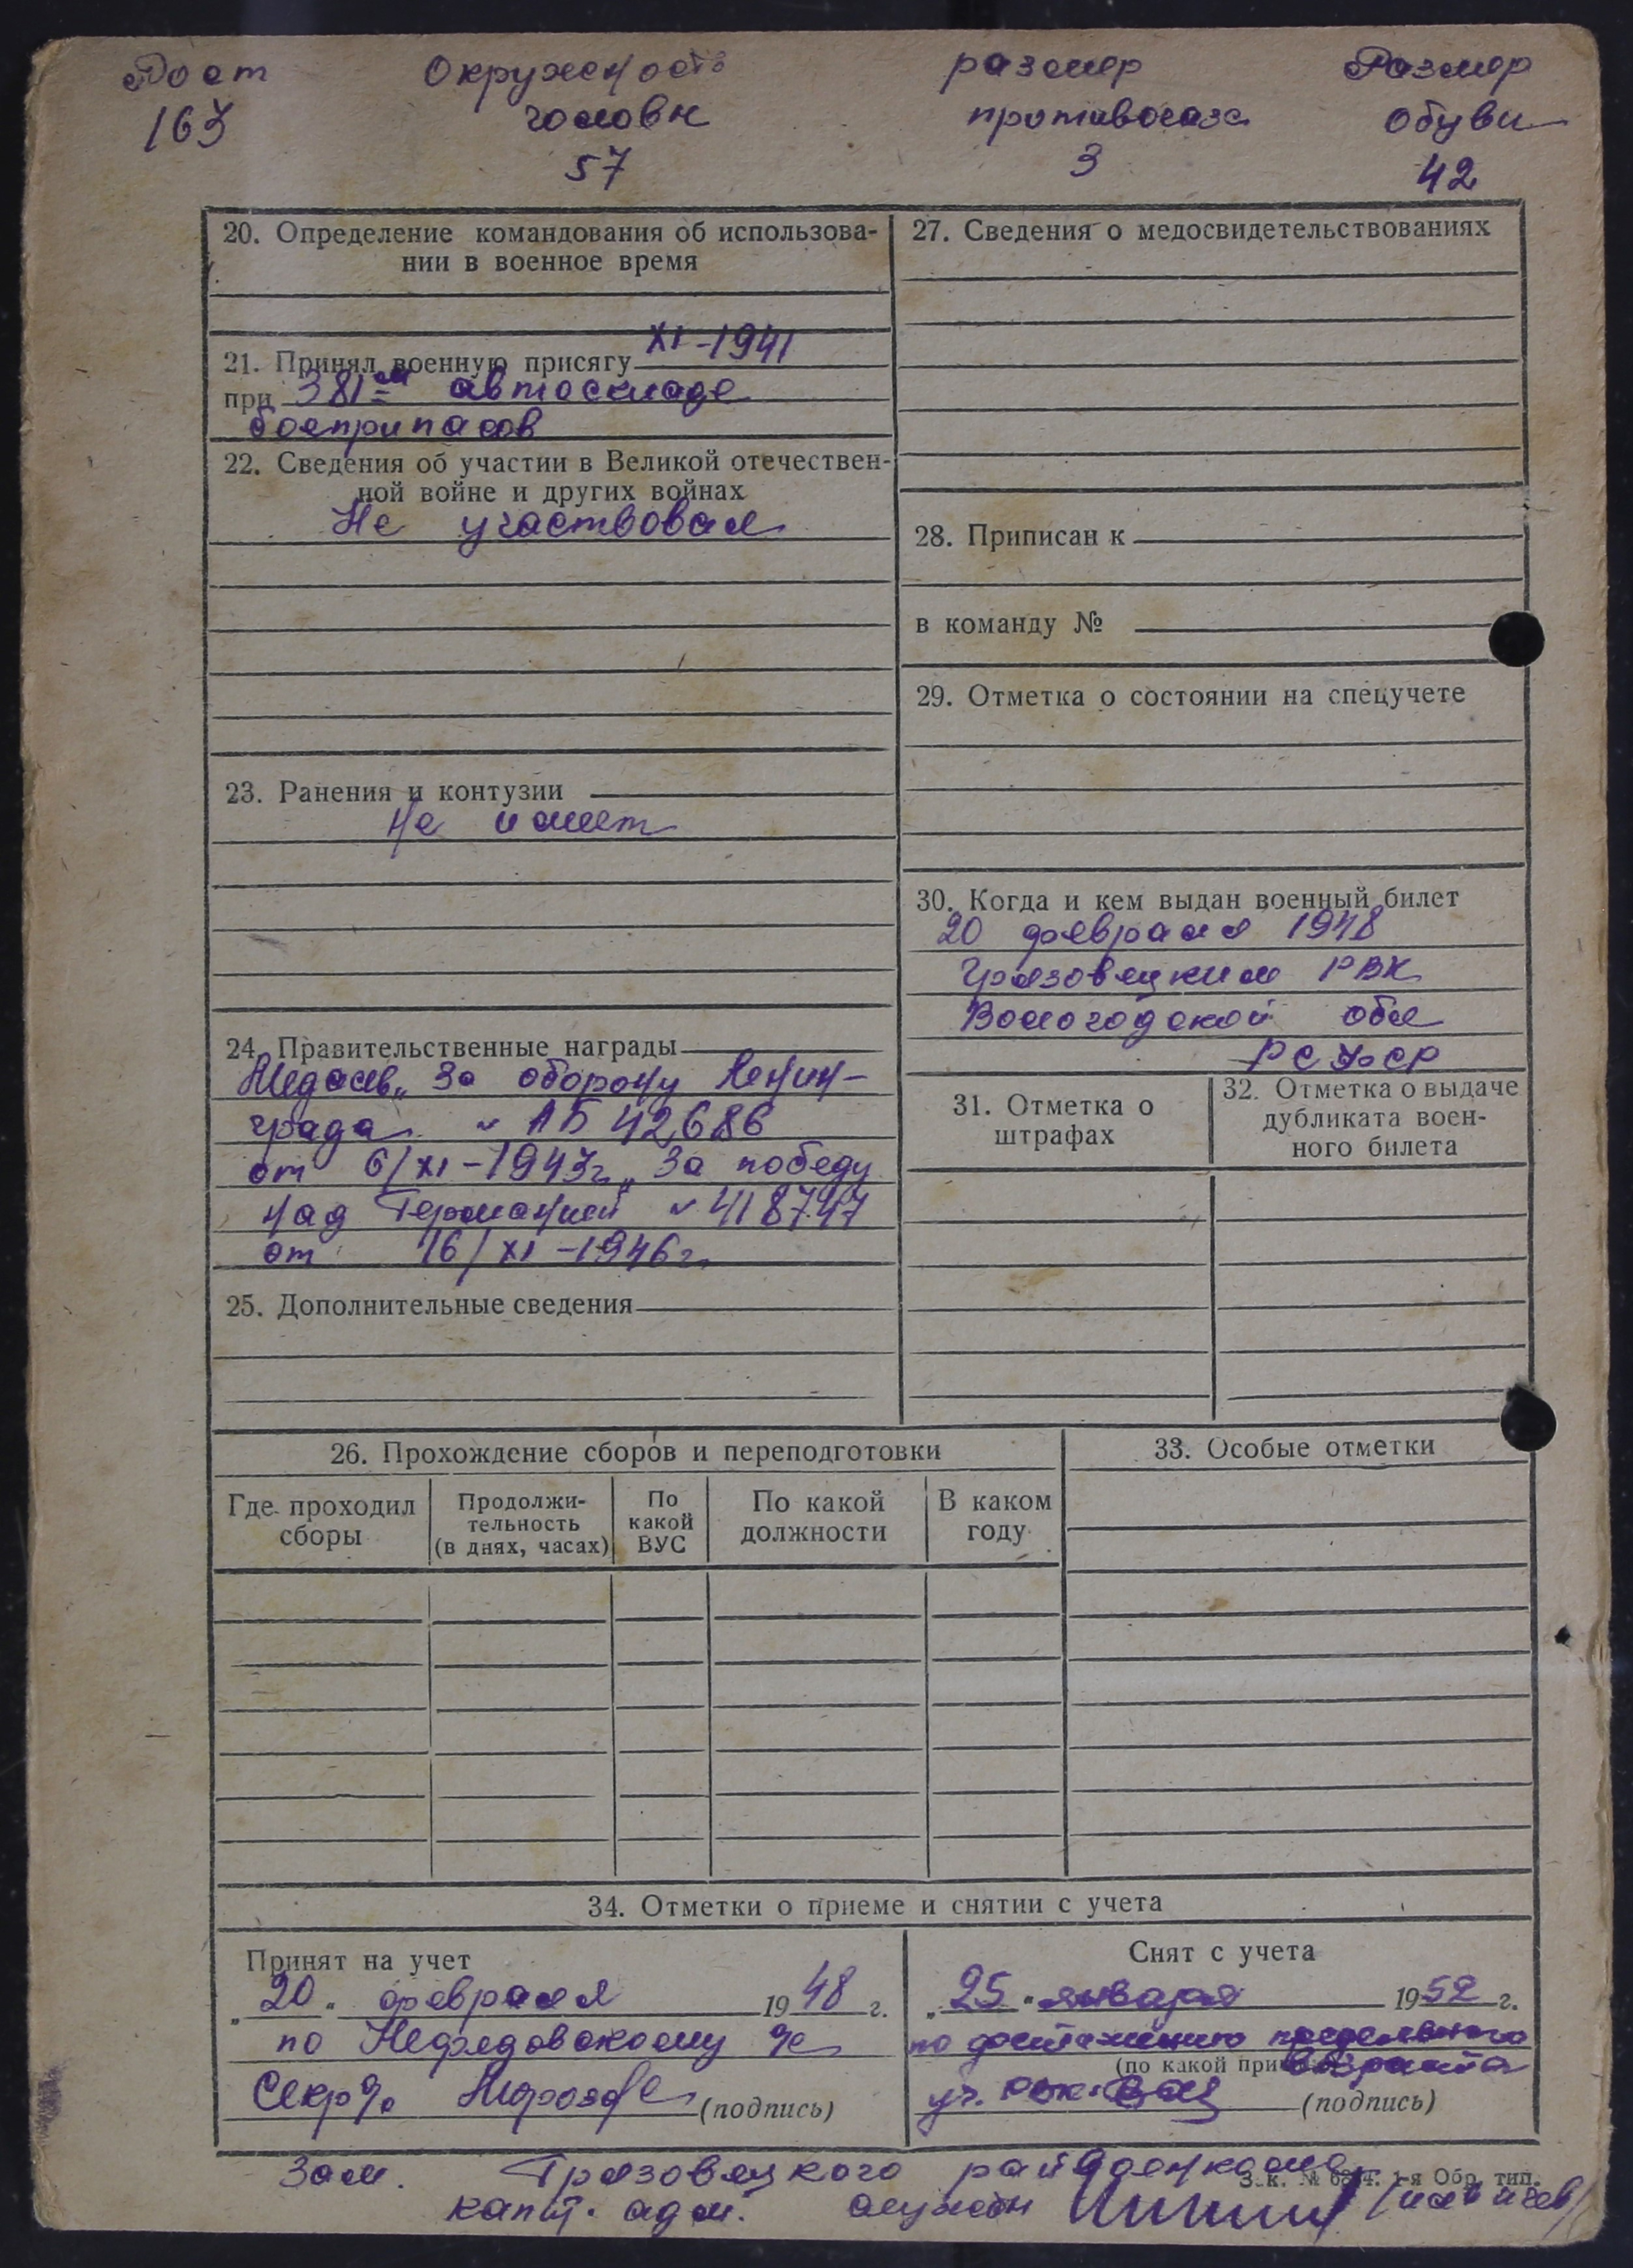 Рост Окружность размер Размер
163 головы противогаза обуви
57 3 42
20. Определение командования об использова-
нии в военное время
21. Принял военную присягу XI-1941
при 381-м автоскладе
боеприпасов
22. Сведения об участии в Великой отечествен-
ной войне и других войнах
Не участвовал
23. Ранения и контузии
Не имеет
24. Правительственные награды
Медаль „За оборону Ленин-
града" АБ 42686
от 6/XI-1943г. „За победу
над Германией" 418747
от 16/XI-1946г.
25. Дополнительные сведения
27. Сведения о медосвидетельствованиях
28. Приписан к
в команду №
29. Отметка о состоянии на спецучете
30. Когда и кем выдан военный билет
20 февраля 1948
Грязовецким РВК
Вологодской обл
РСФСР
31. Отметка о
штрафах
32. Отметка о выдаче
дубликата воен-
ного билета
26. Прохождение сборов и переподготовки
Где проходил
сборы
Продолжи-
тельность
(в днях, часах)
По
какой
ВУС
По какой
должности
В каком
году
33. Особые отметки
34. Отметки о приеме и снятии с учета
Принят на учет
„20" февраля 1948 г.
по Нефедовскому
(подпись)
Снят с учета
„25" января 1952 г.
по достижению предельного
(по какой при возраста
уч. (подпись)
Зам. Грязовецкого райвоенкома
З.к. № 1-я Обр. тип.
капит. адм. службы